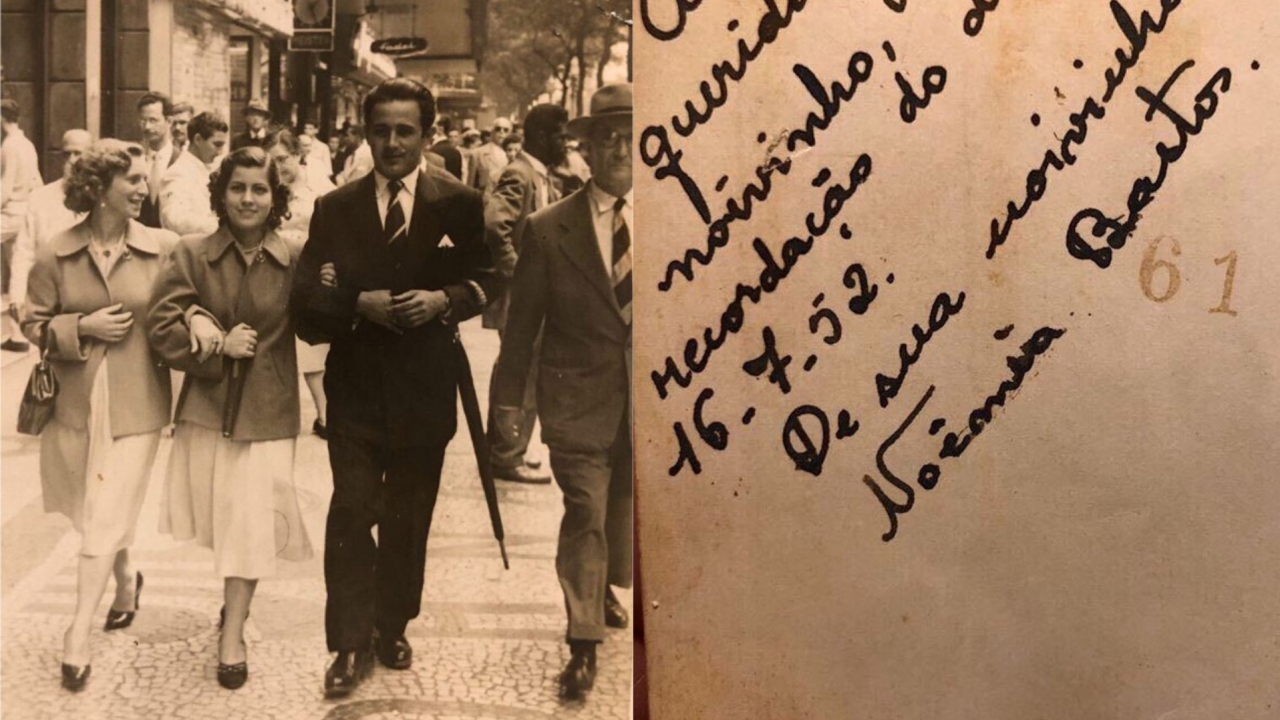 querido
noivinho,
recordação do
16-7-52.
De sua noivinha
Noêmia Bastos.
61